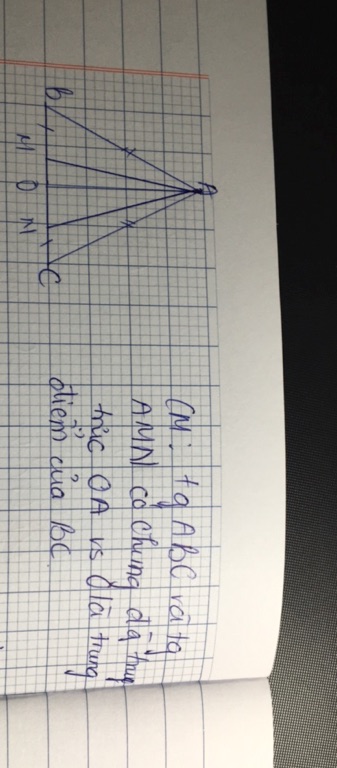 A
B
M
O
N
C
CM: tg ABC và tg
AMN có chung đg trung
trực OA vs O là trung
điểm của BC.